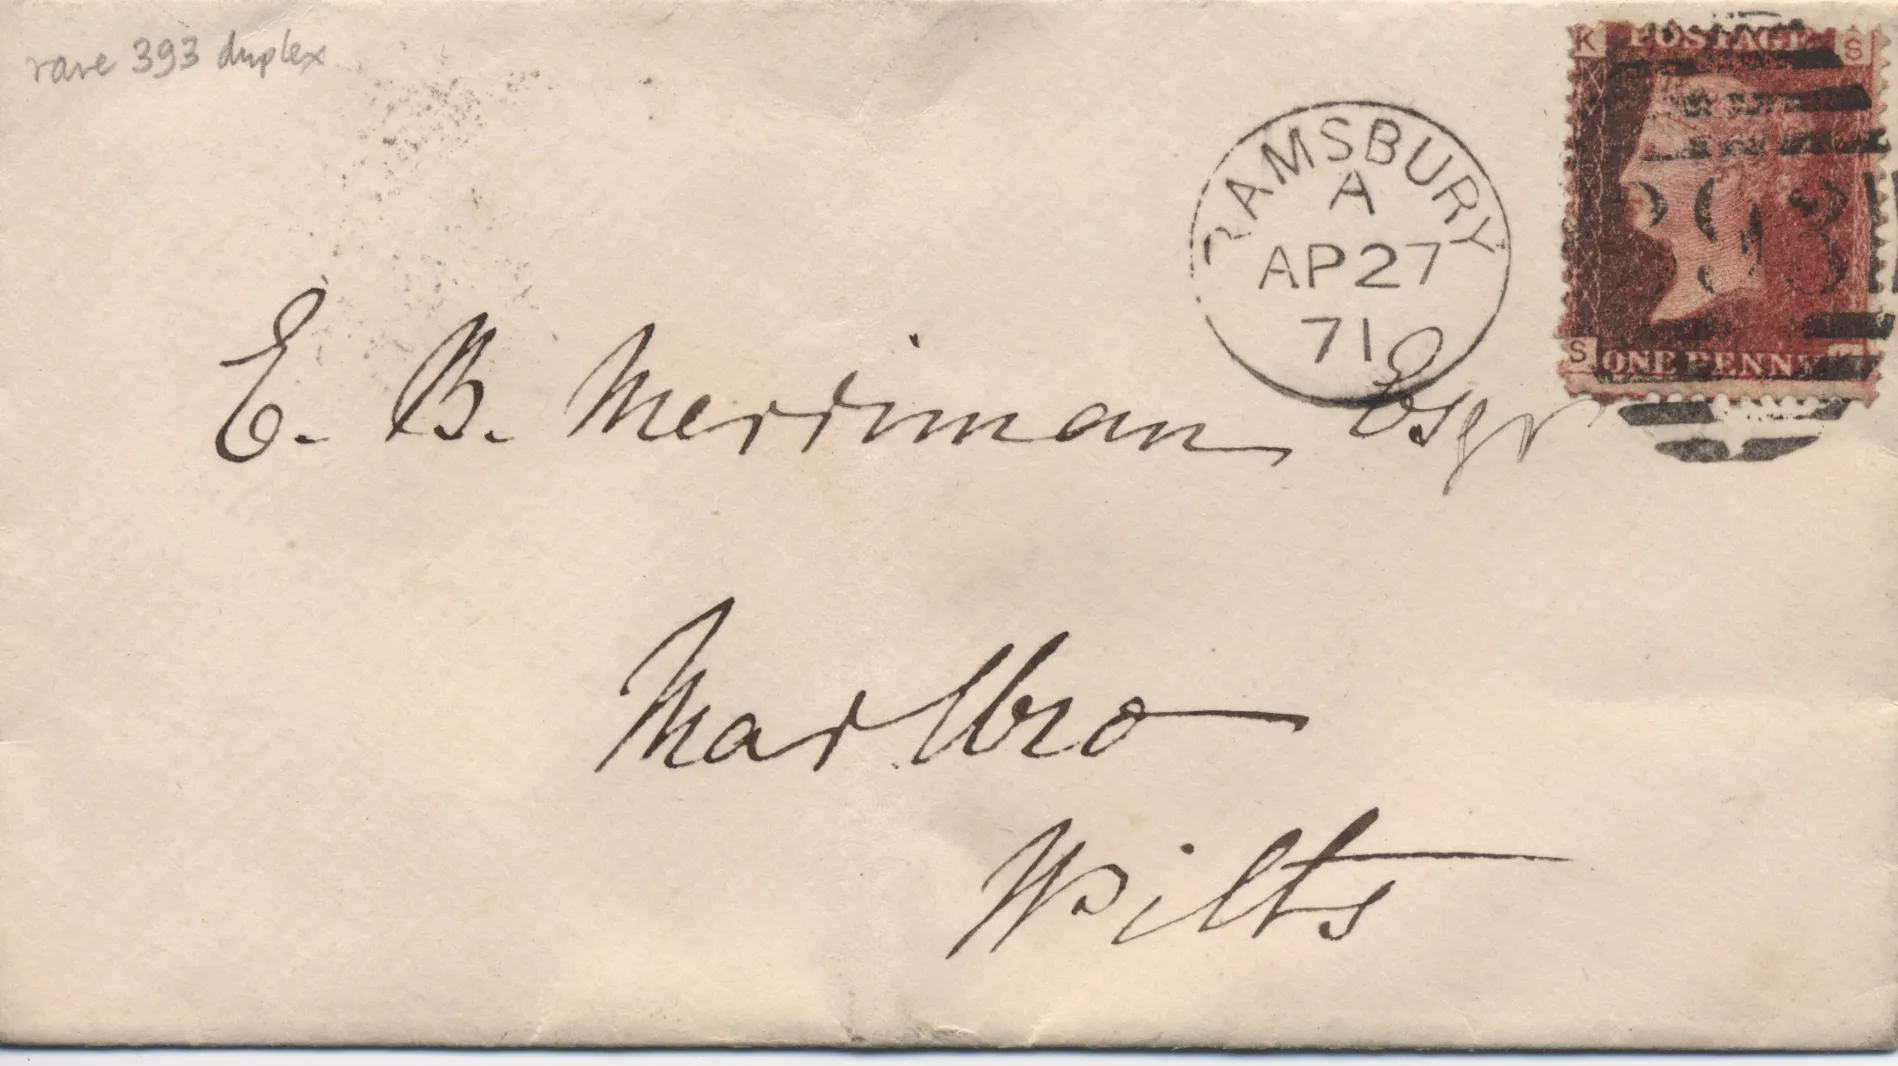 rare 393 duplex
K POSTAGE S
RAMSBURY
A
AP 27
71
393
S ONE PENNY K
E. B. Merriman Esqr
Marlbro
Wilts